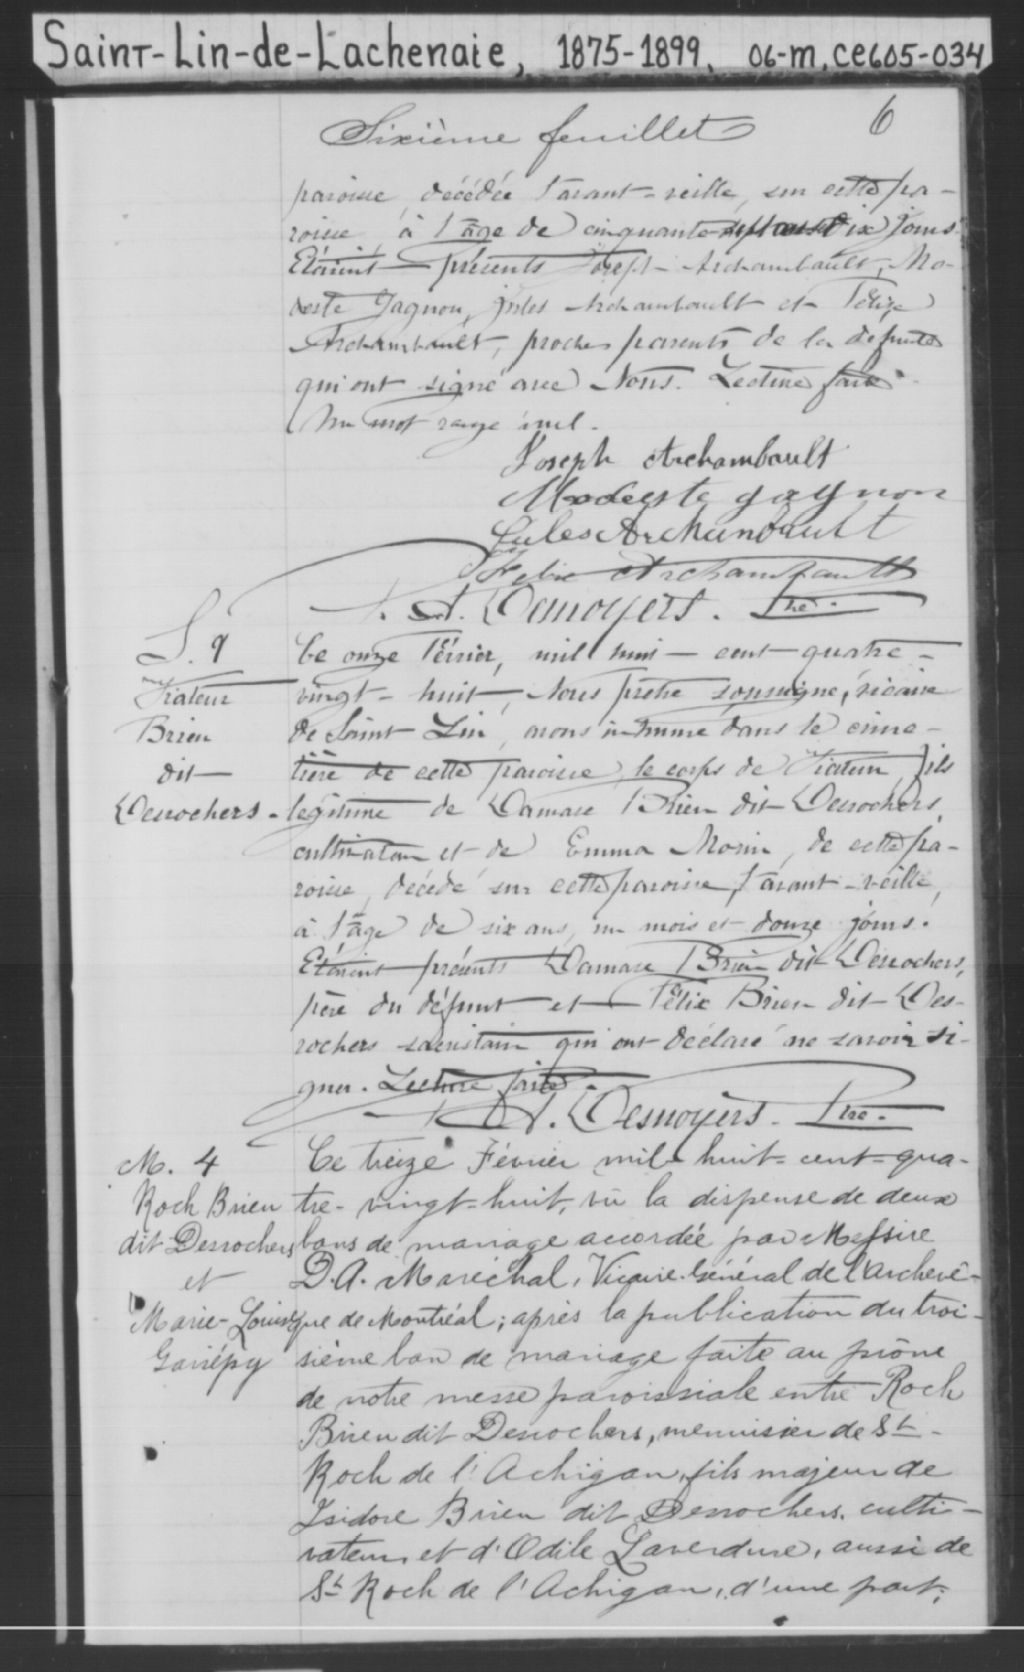 Saint-Lin-de-Lachenaie, 1875-1899. 06-M, CE605-034
6
Sixième feuillet
paroisse, décédée l'avant-veille, sur cette pa-
roisse, à l'âge de cinquante dix jours.
Etaient présents Joseph Archambault, Mo-
deste Gagnon, Jules Archambault et Félix
Archambault, proches parents de la défunte
qui ont signé avec Nous. Lecture faite.
Un mot rayé nul.
Joseph Archambault
Modeste gagnon
Jules Archambault
Félix Archambault
A. Desnoyers. Ptre.
S. 9
Viateur
Brien
dit
Desrochers.
Ce onze Février, mil huit-cent-quatre-
vingt-huit, Nous prêtre soussigné, vicaire
de Saint Lin, avons inhumé dans le cime-
tière de cette paroisse, le corps de Viateur, fils
légitime de Damase Brien dit Desrochers,
cultivateur et de Emma Morin, de cette pa-
roisse, décédé sur cette paroisse, l'avant-veille,
à l'âge de six ans, un mois et douze jours.
Etaient présents Damase Brien dit Desrochers,
père du défunt et Félix Brien dit Des-
rochers sacristain qui ont déclaré ne savoir si-
gner. Lecture faite.
A. Desnoyers. Ptre.
M. 4
Roch Brien
dit Desrochers
et
Marie-Louise
Gariépy
Ce treize Février mil-huit-cent-qua-
tre-vingt-huit, vû la dispense de deux
bans de mariage accordée par Messire
D.A. Maréchal, Vicaire-Général de l'archevê-
que de Montréal; après la publication du troi-
sième ban de mariage faite au prône
de notre messe paroissiale entre Roch
Brien dit Desrochers, menuisier de St-
Roch de l'Achigan, fils majeur de
Isidore Brien dit Desrochers, culti-
vateur, et d'Odile Laverdure, aussi de
St Roch de l'Achigan, d'une part;